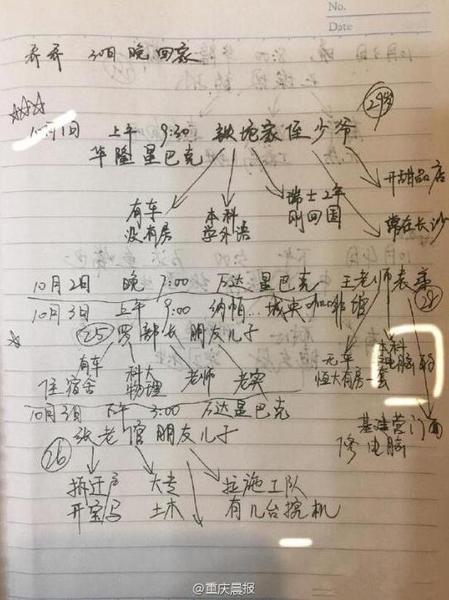 No.
Date
乔乔 30日 晚 回家
10月1日 上午 9:30 铁坨家侄少爷 29岁
华隆星巴克
有车
没有房
本科
学外语
瑞士2年
刚回国
开甜品店
常在长沙
10月2日 晚 7:00 万达星巴克 王老师表亲 28
10月3日 上午 9:00 纳帕... 城央
25 罗部长 朋友儿子
有车
住宿舍
科大
物理
老师
老实
无车
恒大有房一套
本科
电脑
基建营门面
修电脑
10月3日 下午 3:00 万达星巴克
张老馆 朋友儿子
26
拆迁户
开宝马
大专
土木
拉施工队
有几台挖机
@重庆晨报